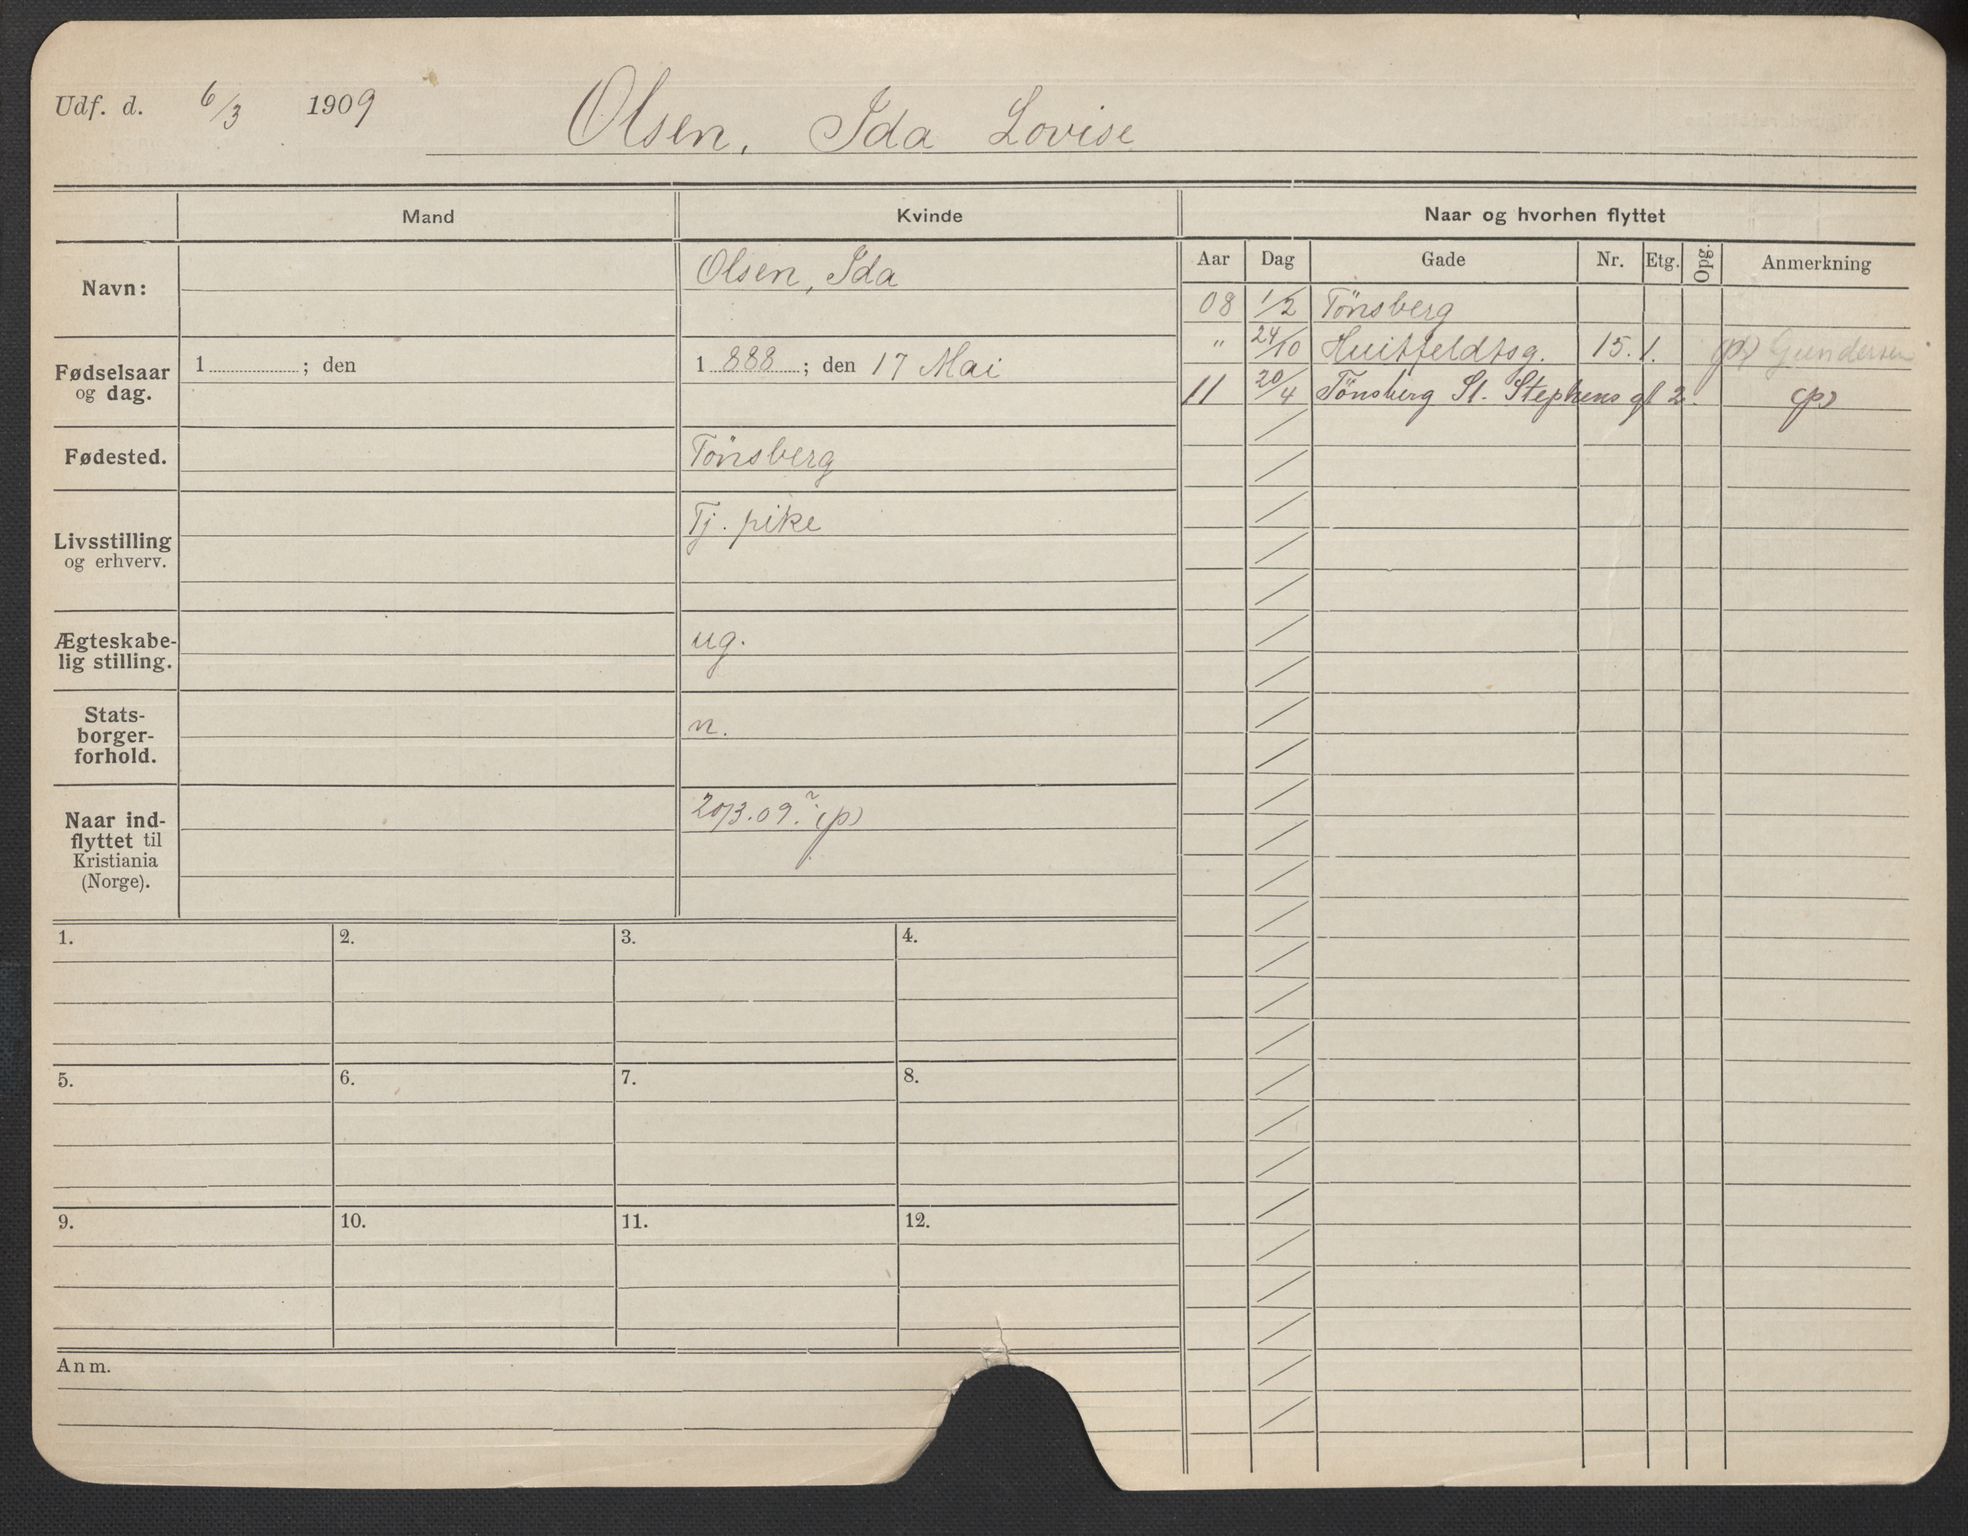 Udf. d. 6/3 1909 Olsen, Ida Lovise
Mand Kvinde Naar og hvorhen flyttet
Aar Dag Gade Nr. Etg. Opg. Anmerkning
Navn: Olsen, Ida
08 1/2 Tönsberg
" 24/10 Huitfeldtsg. 15. 1. (p) Gundersen
11 20/4 Tönsberg St. Stephens gt 2. (p)
Fødselsaar
og dag.
1 ; den
1 888 ; den 17 Mai
Fødested. Tönsberg
Livsstilling
og erhverv.
Tj. pike
Ægteskabe-
lig stilling.
ug.
Stats-
borger-
forhold.
n.
Naar ind-
flyttet til
Kristiania
(Norge).
20/3.09. (p)
1. 2. 3. 4.
5. 6. 7. 8.
9. 10. 11. 12.
Anm.